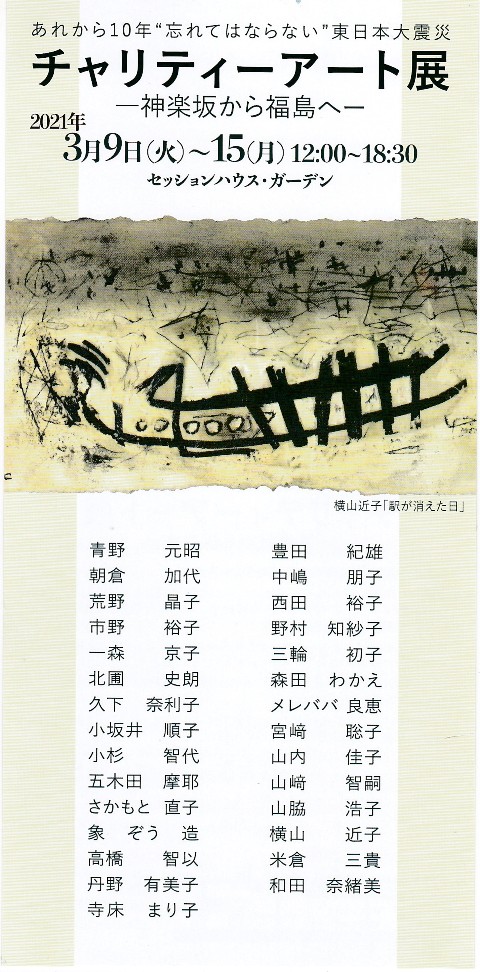 あれから10年“忘れてはならない”東日本大震災
チャリティーアート展
―神楽坂から福島へ―
2021年
3月9日(火)～15(月) 12:00~18:30
セッションハウス・ガーデン
横山近子「駅が消えた日」
青野 元昭
朝倉 加代
荒野 晶子
市野 裕子
一森 京子
北圃 史朗
久下 奈利子
小坂井 順子
小杉 智代
五木田 摩耶
さかもと 直子
象 ぞう 造
高橋 智以
丹野 有美子
寺床 まり子
豊田 紀雄
中嶋 朋子
西田 裕子
野村 知紗子
三輪 初子
森田 わかえ
メレババ 良恵
宮﨑 聡子
山内 佳子
山﨑 智嗣
山脇 浩子
横山 近子
米倉 三貴
和田 奈緒美